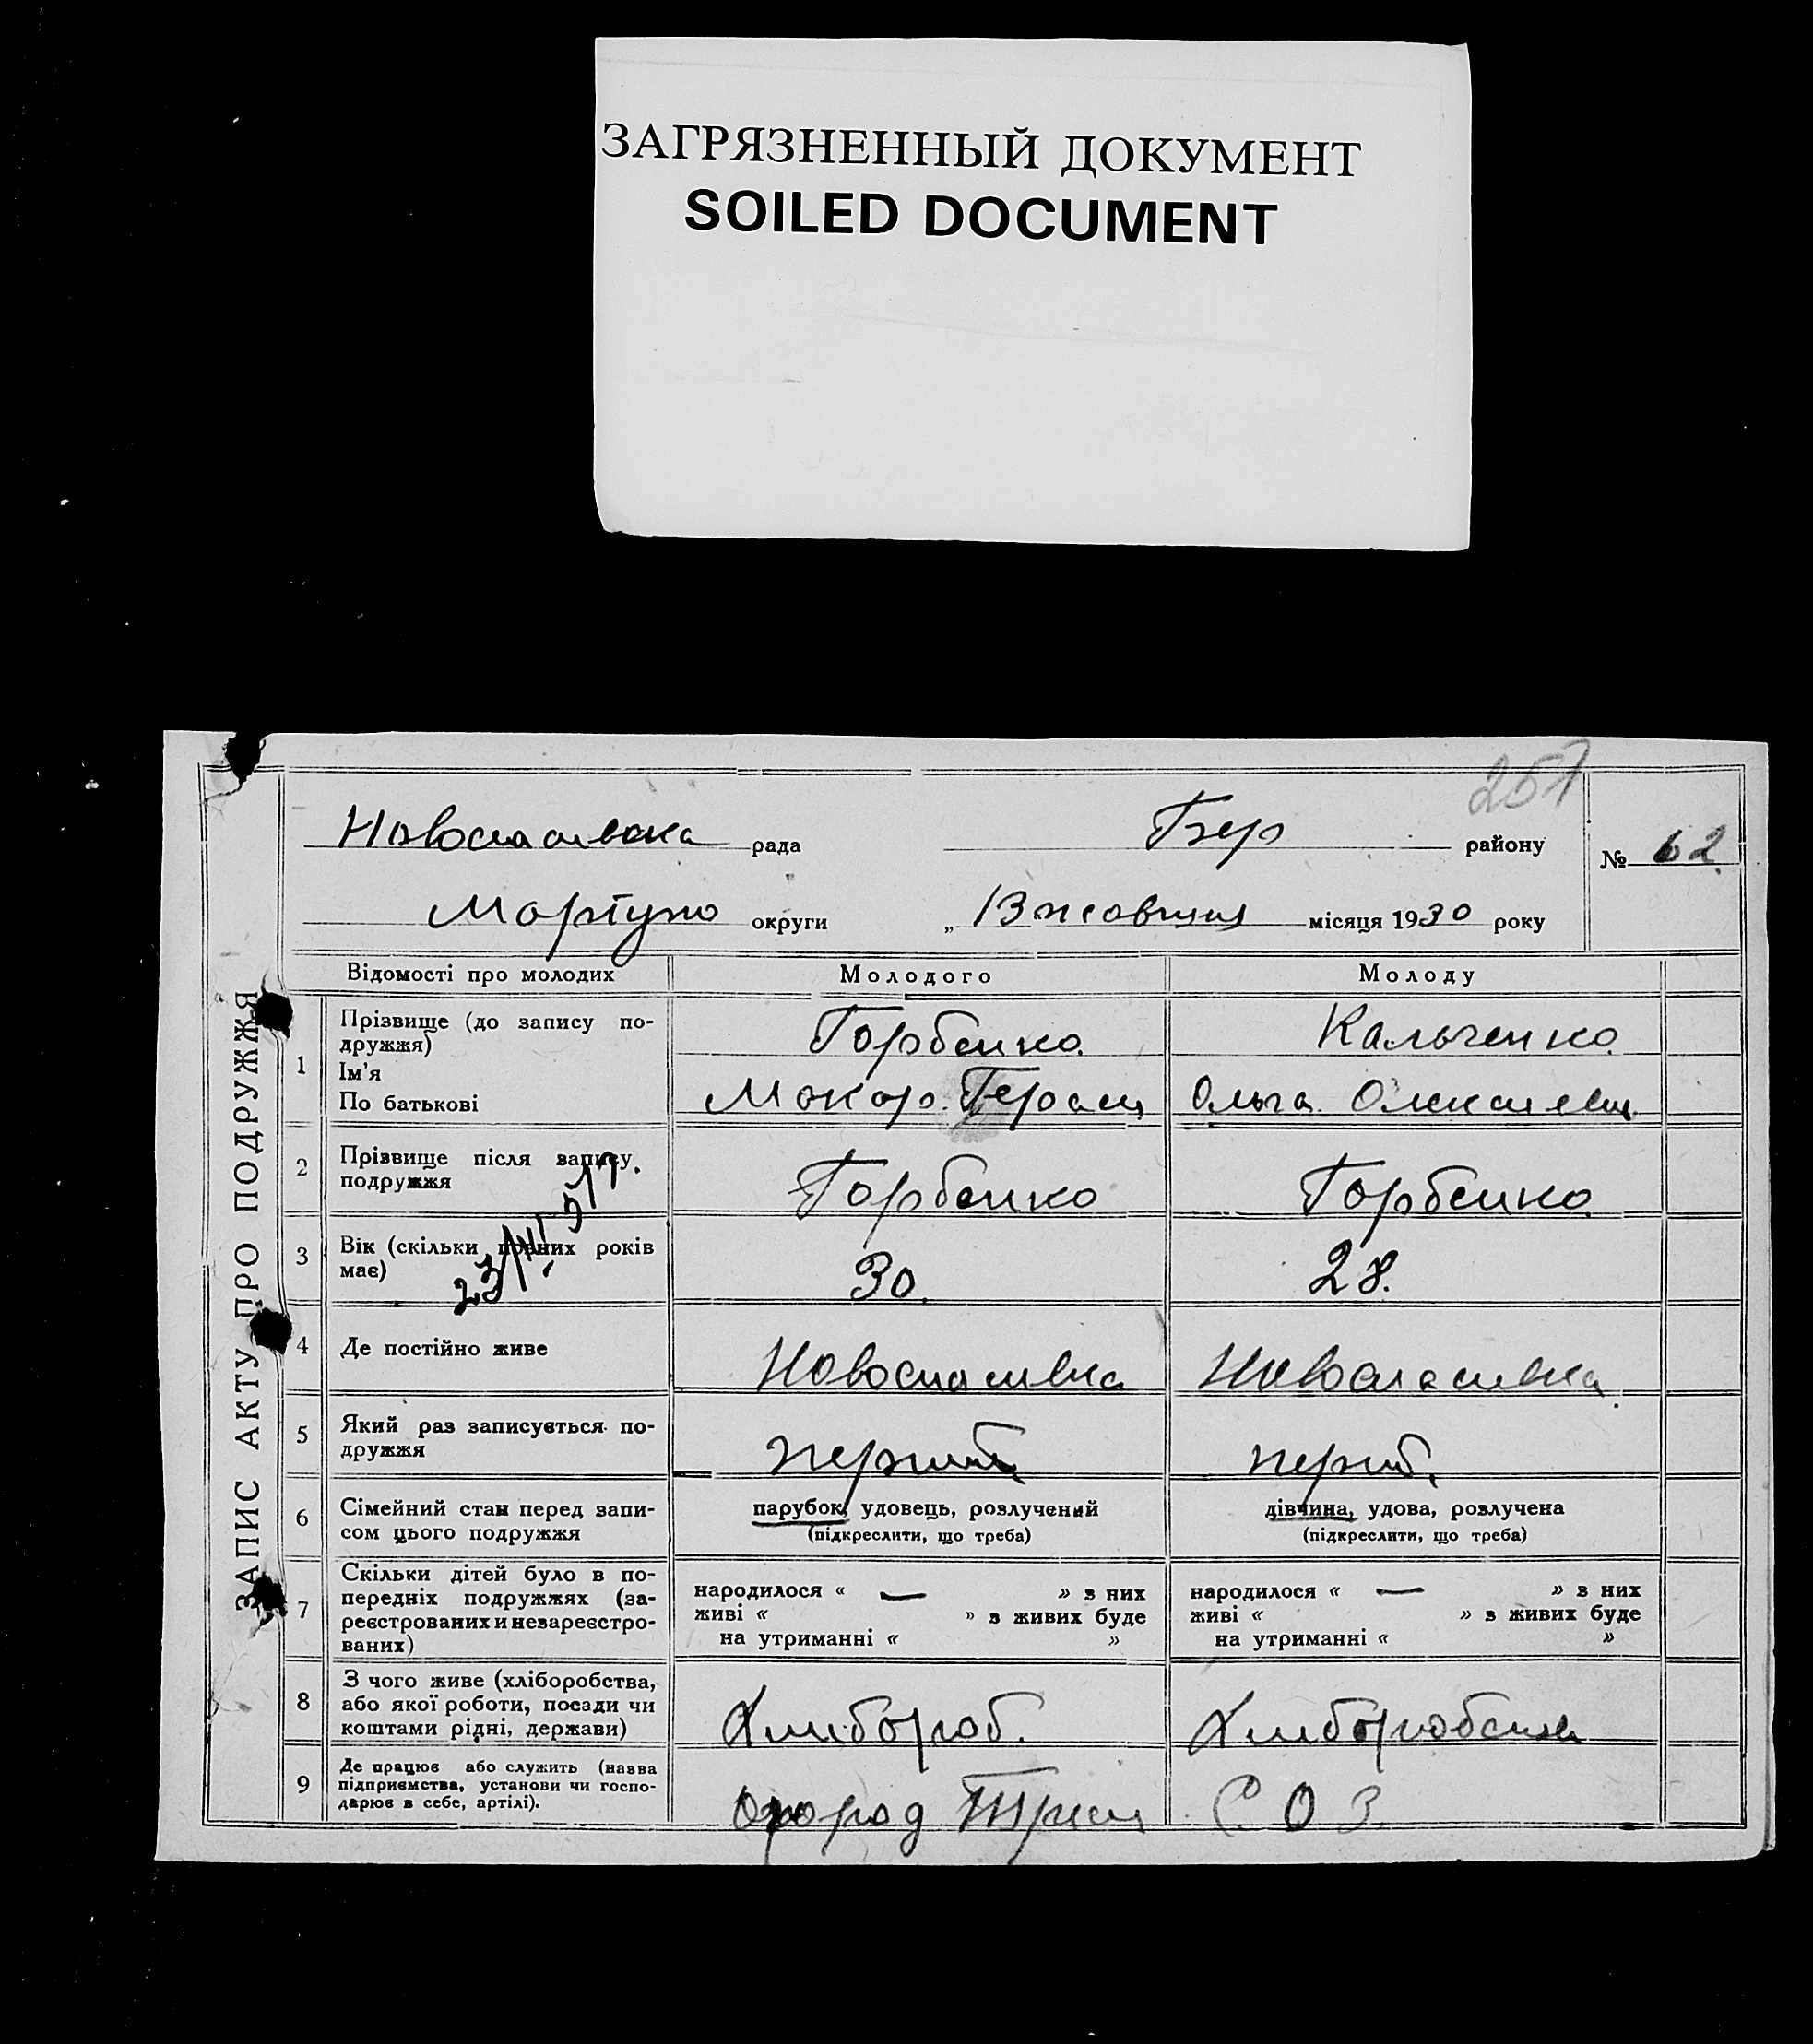 ЗАГРЯЗНЕННЫЙ ДОКУМЕНТ
SOILED DOCUMENT
251
Новоспасівська рада Бер району № 62
Маріупо округи „ 13 жовтня місяця 1930 року
ЗАПИС АКТУ ПРО ПОДРУЖЖЯ
Відомості про молодих Молодого Молоду
1 Прізвище (до запису по-
дружжя) Горбенко Кальченко
Ім'я
По батькові Макар. Герасим Ольга Олексієвн.
2 Прізвище після запису
подружжя Горбенко Горбенко
3 Вік (скільки повних років
має) 30. 28.
4 Де постійно живе Новоспасівка Новоспасівка
5 Який раз записується по-
дружжя перший перший
6 Сімейний стан перед запи-
сом цього подружжя
парубок, удовець, розлучений
(підкреслити, що треба)
дівчина, удова, розлучена
(підкреслити, що треба)
7 Скільки дітей було в по-
передніх подружжях (за-
реєстрованих и незареєстро-
ваних)
народилося « — » з них
живі « » з живих буде
на утриманні « »
народилося « — » з них
живі « » з живих буде
на утриманні « »
8 З чого живе (хліборобства,
або якої роботи, посади чи
коштами рідні, держави)
Хлібороб. Хліборобство
9 Де працює або служить (назва
підприємства, установи чи госпо-
дарює в себе, артілі).
Огород С.О.З.